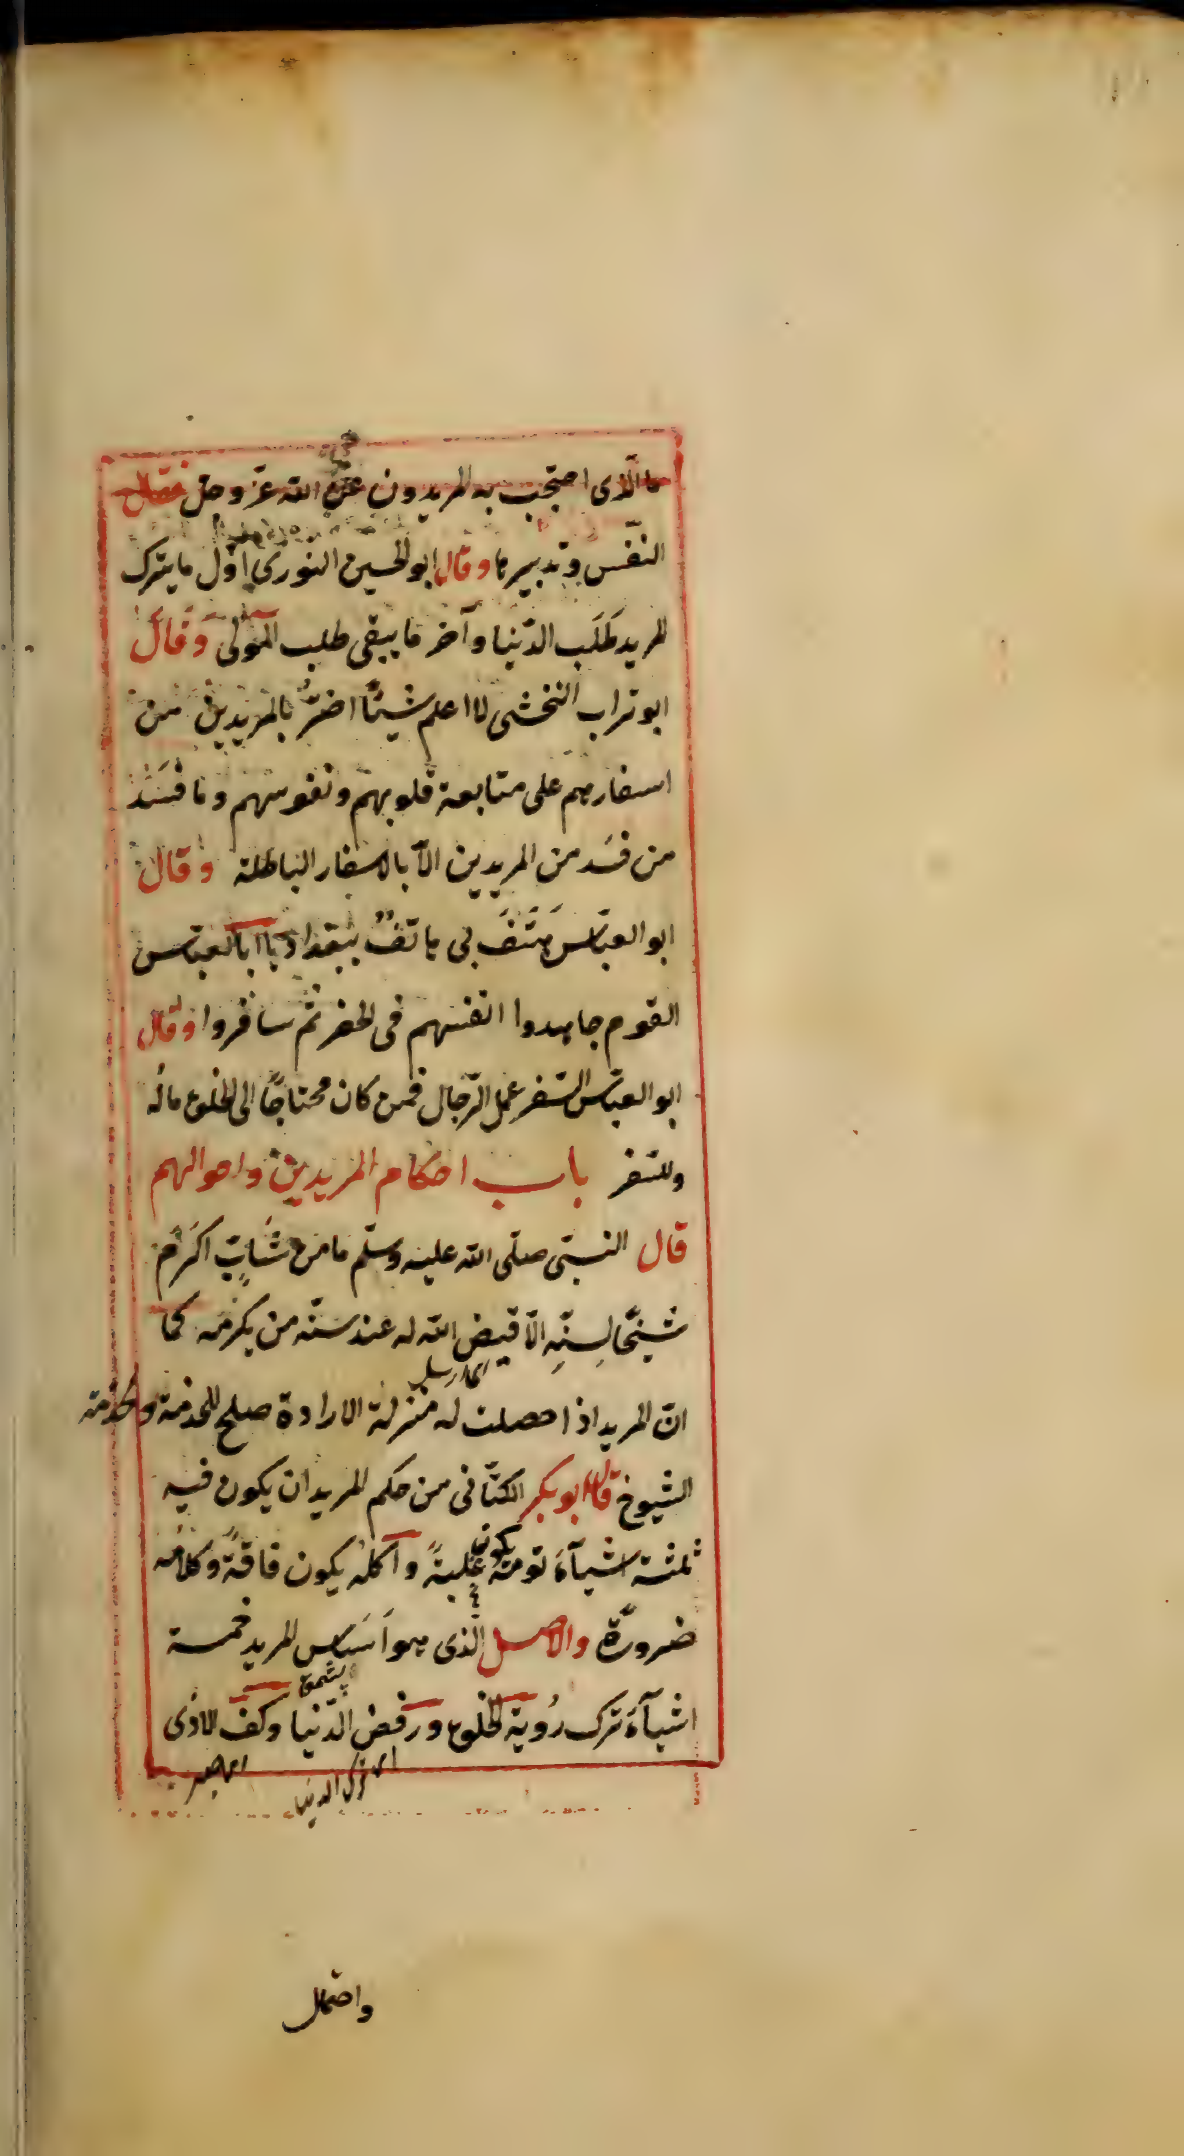 ما الّذى احتجب به المريدون عن الله عزّ وجلّ فقال
النفس وتدبيرها وقال ابو الحسين النورى اوّل ما يترك
المريد طَلَب الدّنيا وآخر ما يبقى طلب المَولى وَقَالَ
ابو تراب النخشبى لا اعلم شيئًا اضرّ بالمريدين من
اسفارهم على متابعة قلوبهم ونفوسهم وما فَسَدَ
من فسَد من المريدين الّا بالاسفار الباطلة وقال
ابو العبّاس هَتَفَ بى هاتفٌ ببغداد يا ابا العبّاس
القوم جاهدوا انفسهم فى الحضر ثمّ سافروا وقال
ابو العبّاس السّفر عمل الرّجال فمن كان محتاجًا الى الخلوع ماله
وللسّفر باب احكام المريدين واحوالهم
قال النبىّ صلّى الله عليه وسلّم ما من شَابٍّ اكرَم
شيخًا لِسنِّه الّا قيض الله له عند سنّه من يكرمه كما
اى ارسل
انّ المريد اذا حصلت له منزلة الارادة صلح للخدمة ولخدمة
الشيوخ قال ابو بكر الكتّانى من حكم المريد ان يكون فيه
ثلثة اشيآءَ نومه يكون غلبةً واكله يكون فاقةً وكلامه
ضرورةً والاصل الّذى هو اَسَاس المريد خمسة
اشيآءَ ترك رُوية الخلوع ورفض الدّنيا وكفّ الاذى
اى ترك الدنيا
واحتمال